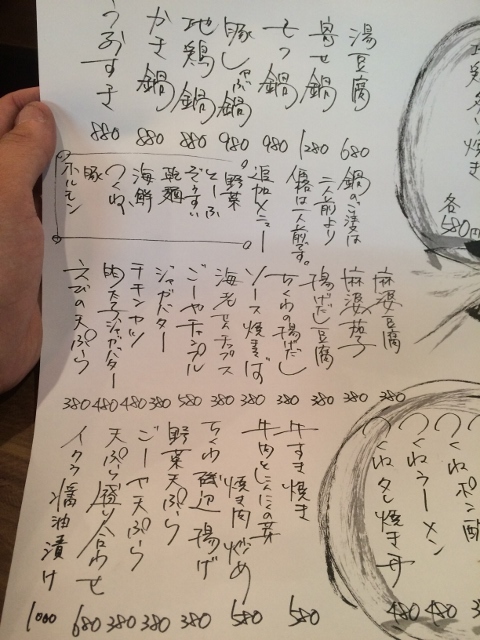 地鶏タレ焼き
各580円
湯豆腐 680
寄せ鍋 1280
もつ鍋 980
豚しゃぶ鍋 980
地鶏鍋 880
かき鍋 880
うおすき 880
鍋のご注文は
二人前より
価格は一人前です。
追加メニュー
野菜
とーふ
ぞうすい
乾麺
海鮮
つくね
豚
ホルモン
麻婆豆腐 380
麻婆茄子 380
揚げだし豆腐 380
ちくわの揚げだし 380
ソース焼きそば 380
海老チップス 380
ごーやチャンプル 580
ジャガバター 380
チキンカツ 480
明太子ジャガバター 480
えびの天ぷら 380
つくねポン酢 3
つくねラーメン 480
つくねタレ焼き 480
牛すき焼き 580
牛肉とにんにくの芽
焼き肉炒め 580
ちくわ磯辺揚げ 380
野菜天ぷら 380
ごーや天ぷら 380
天ぷら盛り合わせ 680
イクラ醤油漬け 1000